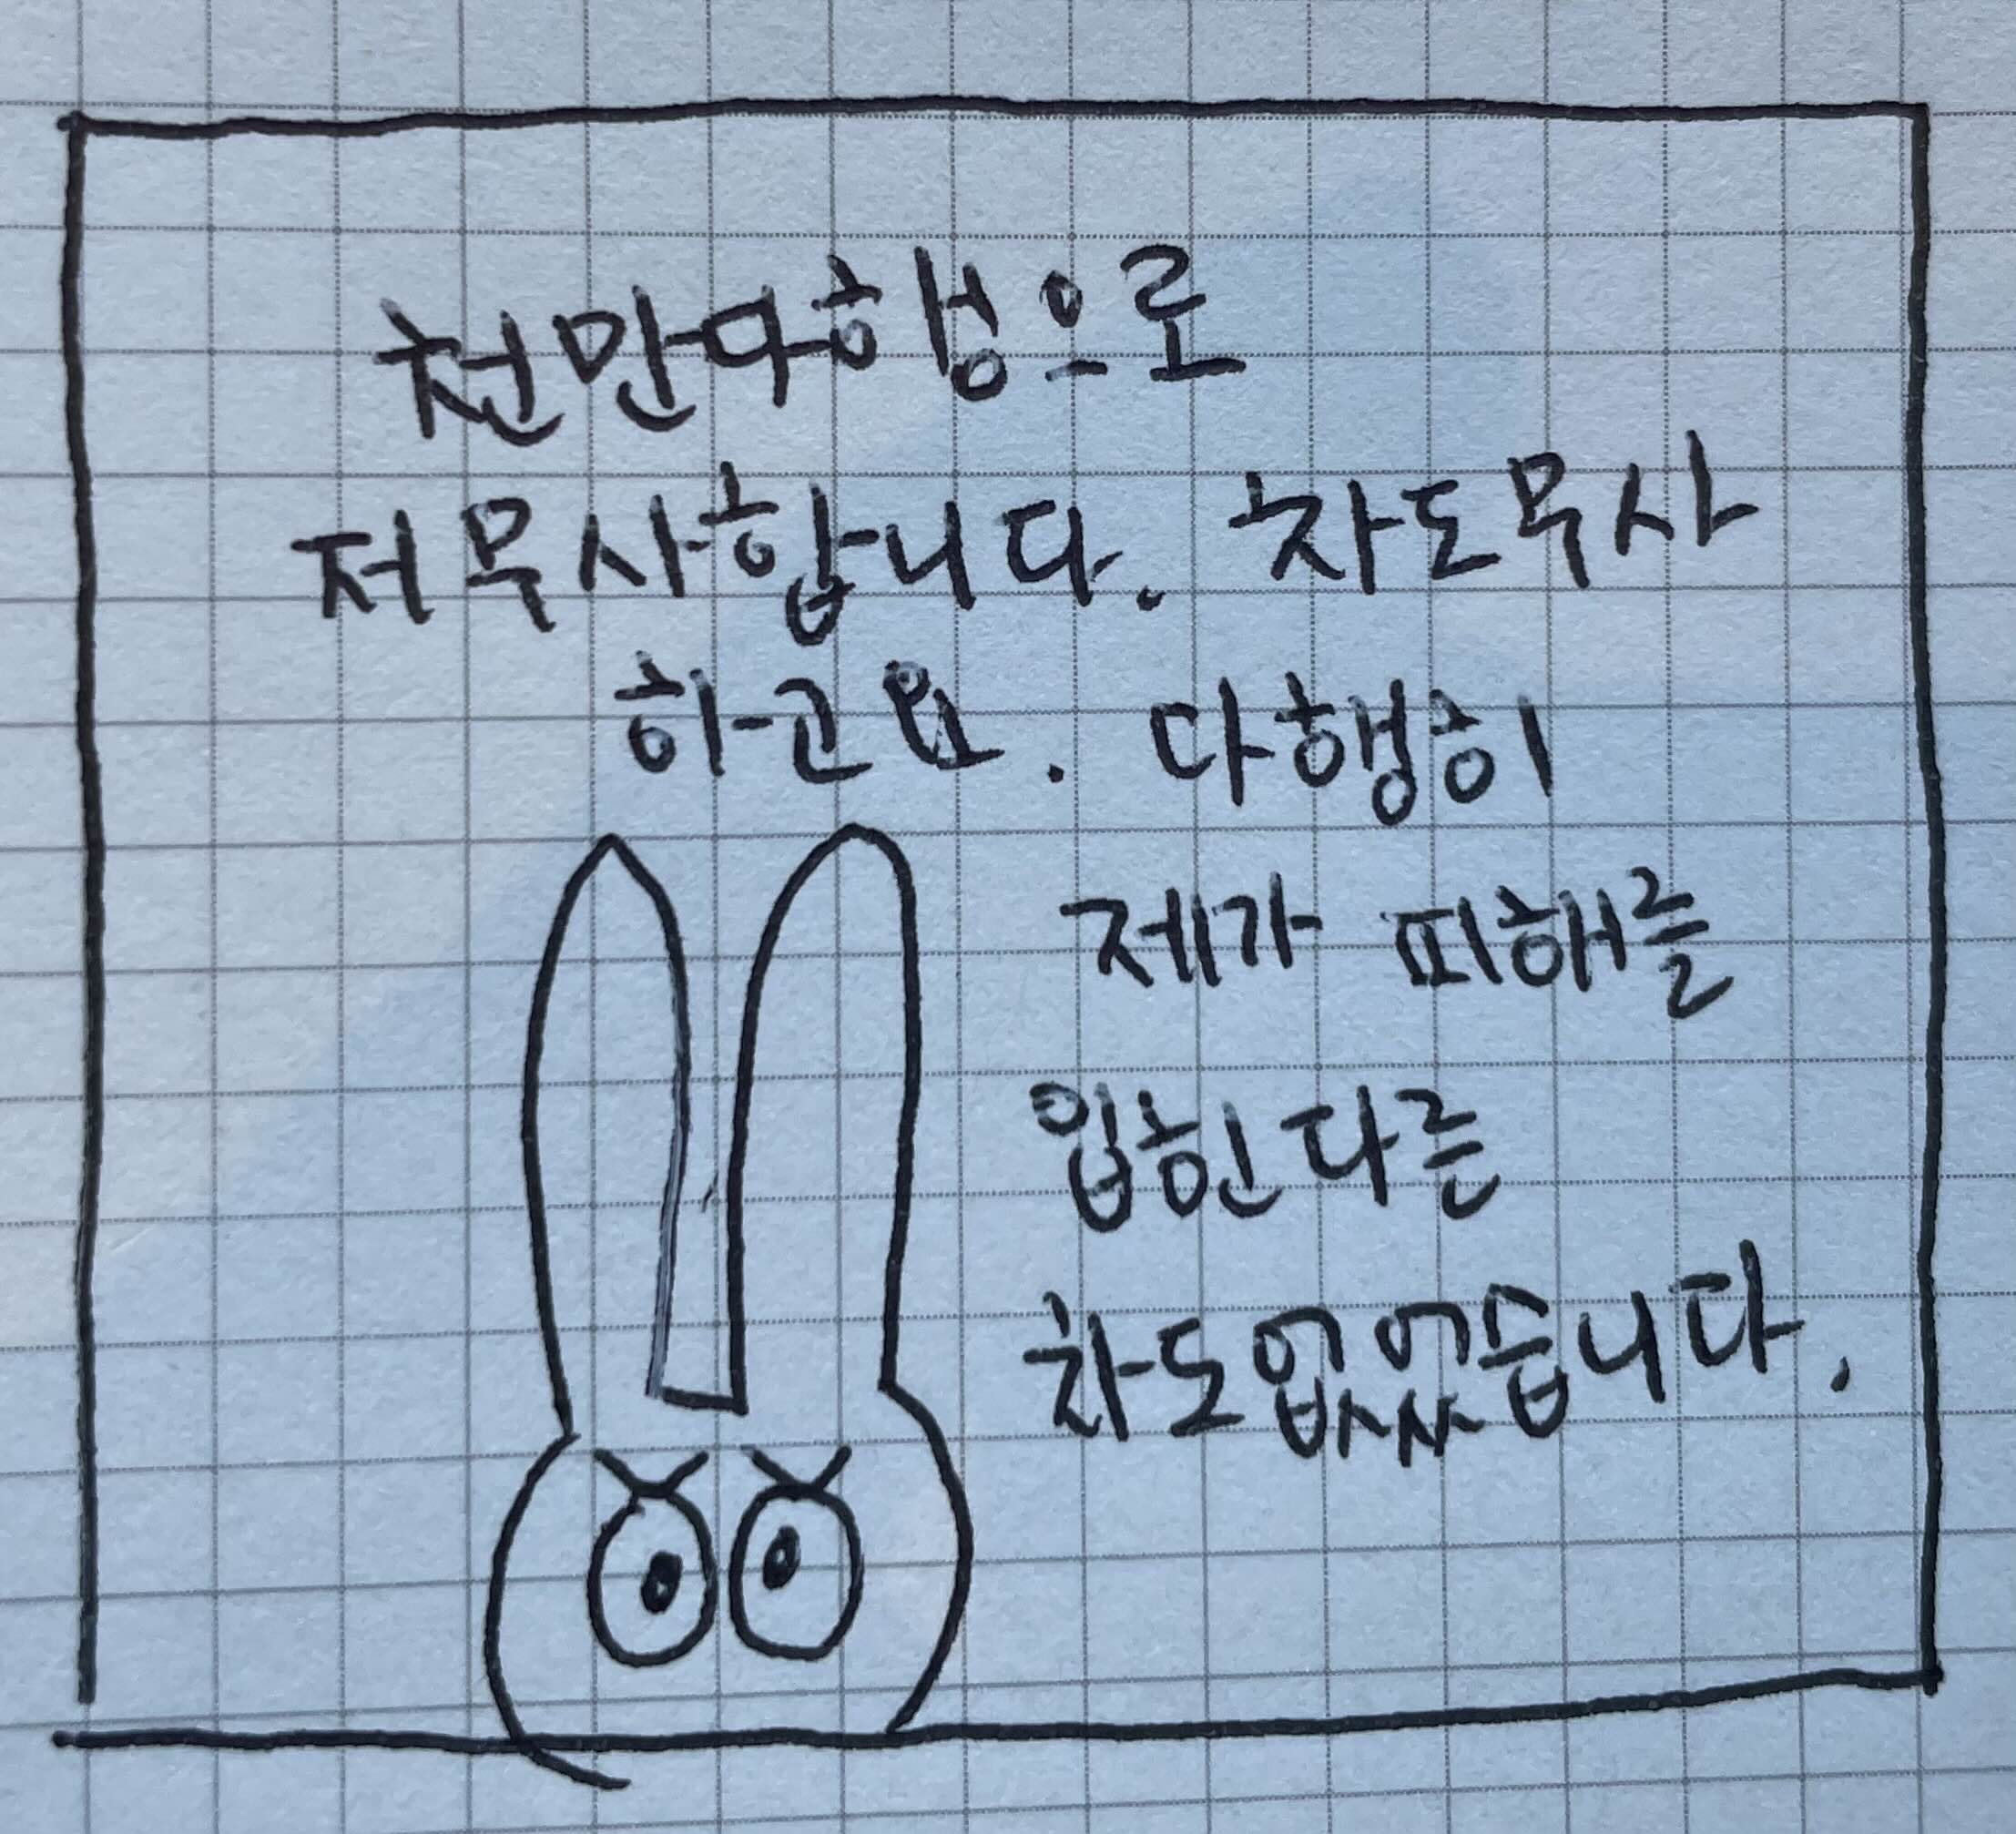 천만다행으로
저 무사합니다. 차도무사
하고요. 다행히
제가 피해를
입힌 다른
차도없었습니다.